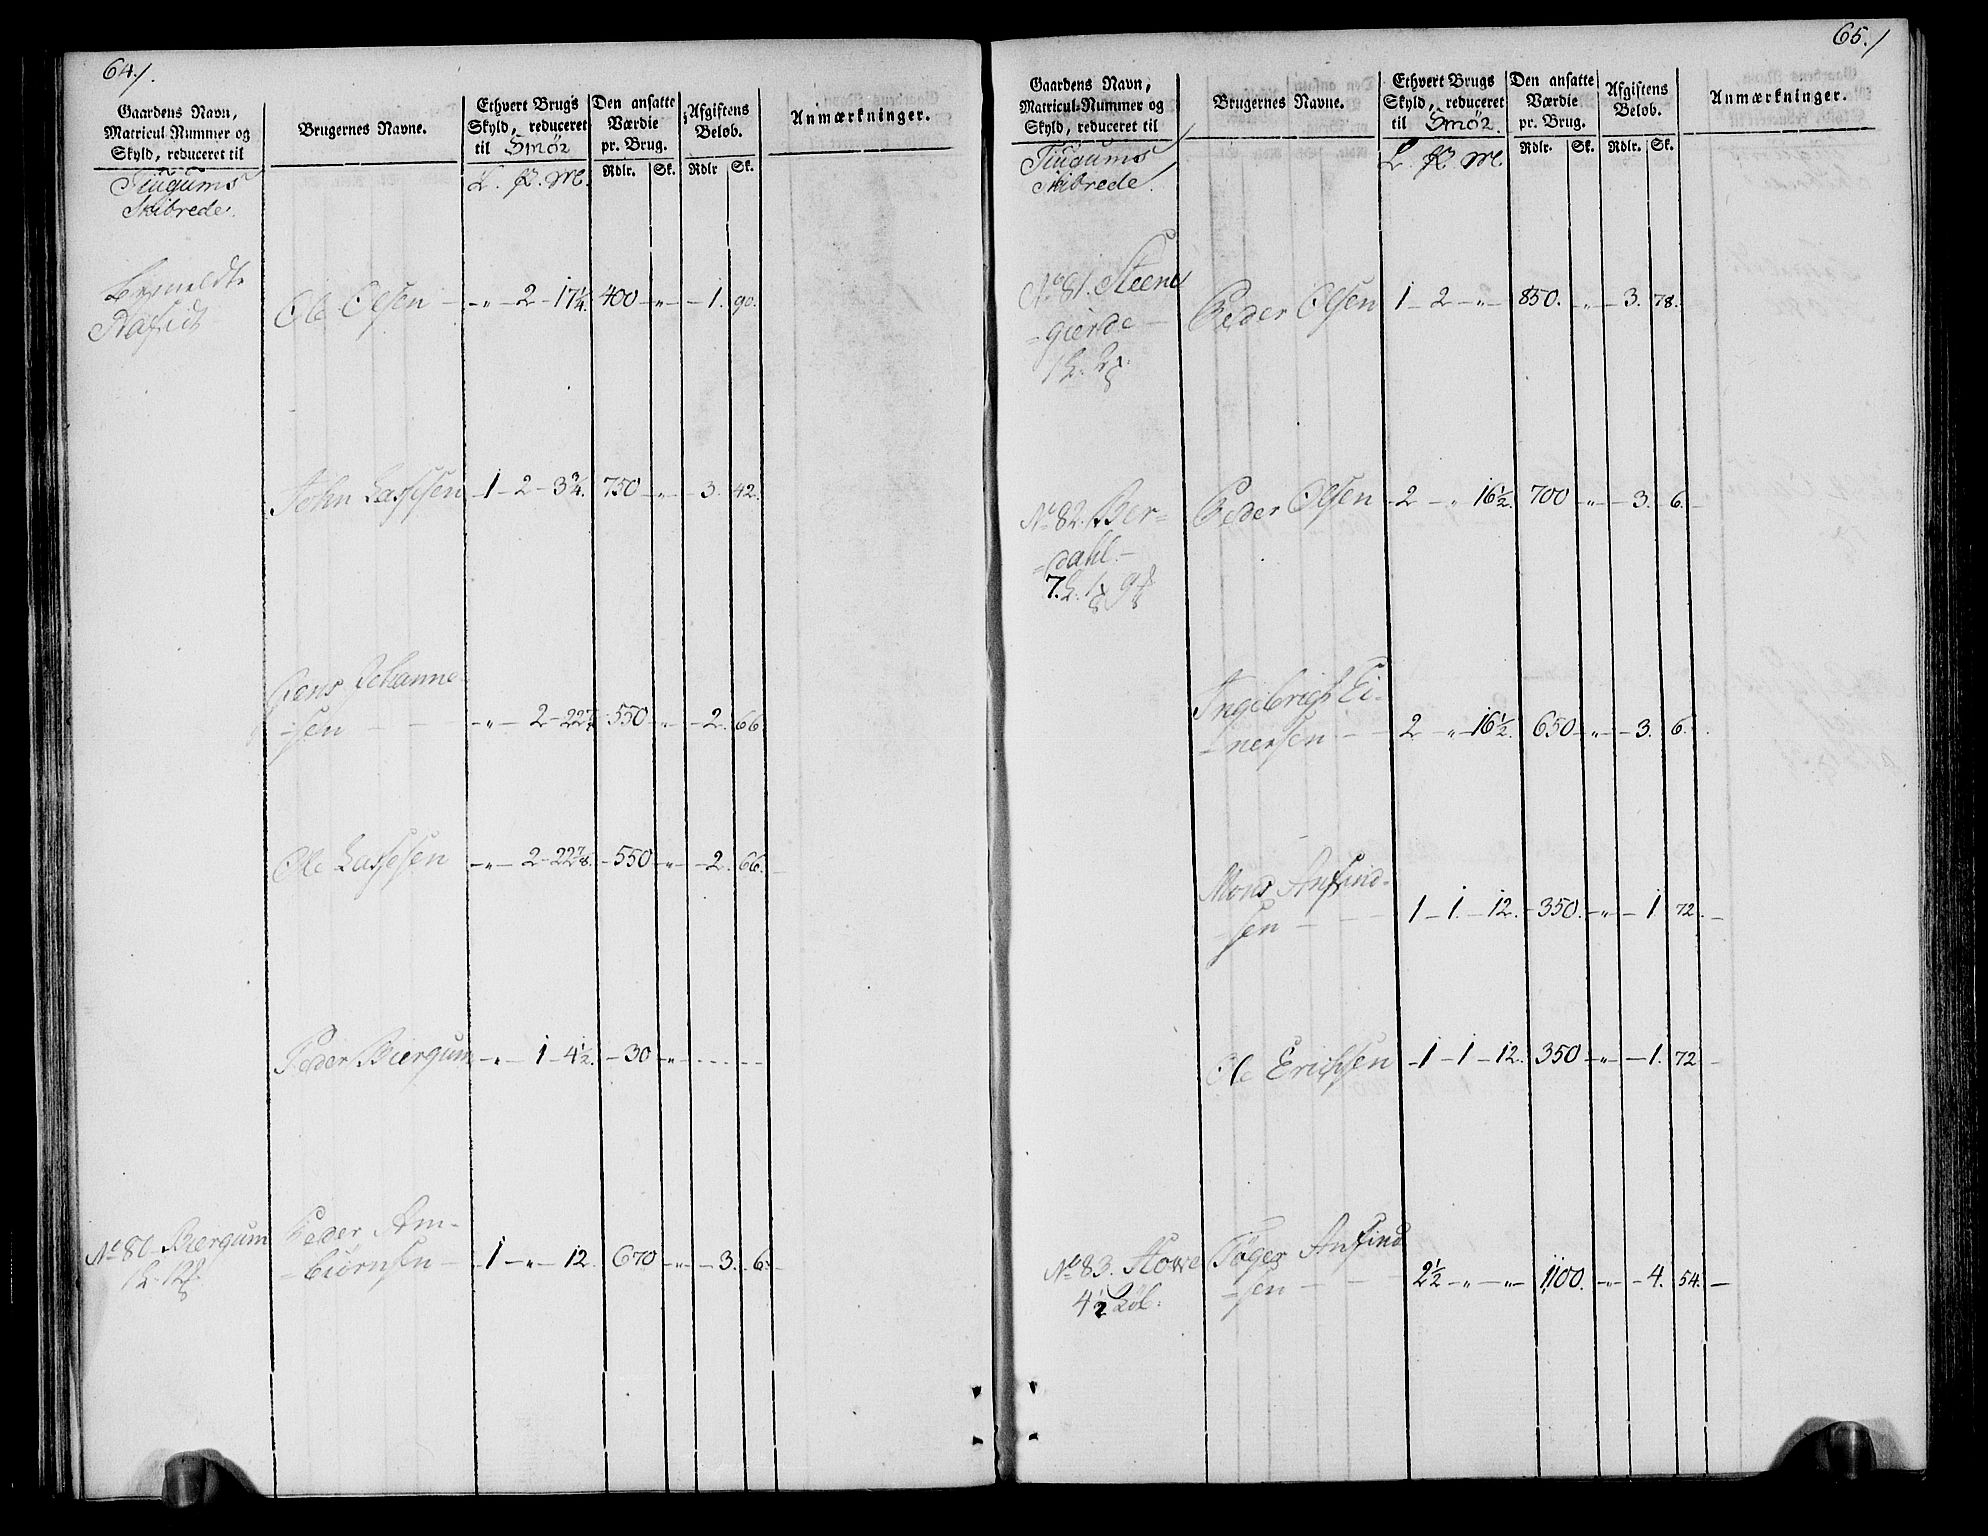 64./.
Gaardens Navn,
Matricul-Nummer og
Skyld, reduceret til
Brugernes Navne.
Ethvert Brugs
Skyld, reduceret
til Smör
Den ansatte
Værdie
pr. Brug.
Afgiftens
Beløb.
Anmærkninger.
Rdlr. Sk. Rdlr Sk.
Tiugums
Skibrede.
L. R. Mk.
Ole Olsen - „ - 2 - 17 1/4. 400 - „ - 1. 90.
John Lassesen - 1 - 2 - 3 3/4. 750 - „ - 3. 42.
Jens Johanne-
-sen - „ - 2 - 22 7/8 550 - „ - 2. 66
Ole Lassesen - „ - 2 - 22 7/8. - 550 - „ - 2. 66.
Peder Biergum - „ - 1 - 4 1/2. - 30 - „ -
No 80 Biergum Peder Am-
-biørnsen - 1 - „ - 12. 670 - „ - 3. 6.
65./
Gaardens Navn,
Matricul-Nummer og
Skyld, reduceret til
Brugernes Navne.
Ethvert Brugs
Skyld, reduceret
til Smör.
Den ansatte
Værdie
pr. Brug.
Afgiftens
Beløb.
Anmærkninger.
Rdlr. Sk. Rdlr. Sk.
Tiugums
Skibrede.
L. R. Mk.
No 81. Steens
-gierde
Peder Olsen 1 - 2 - „ - 850. „ - 3. 78.
No 82. Ber-
-dahl.
Peder Olsen - 2 - „ 16 1/2. 700 - „ - 3. 6.
Ingebrigt Ei-
-nersen 2 - „ 16 1/2. 650 - „ - 3. 6.
Mons Anfind-
-sen 1 - 1. - 12. - 350. - „ - 1. 72. -
Ole Erichsen - 1 - 1 - 12. 350 - „ - 1. 72 -
No 83. Howe Tøger Anfind
4 1/2 Løb. -sen 2 1/2 - „ - „ - 1100. - „ - 4. 54. -